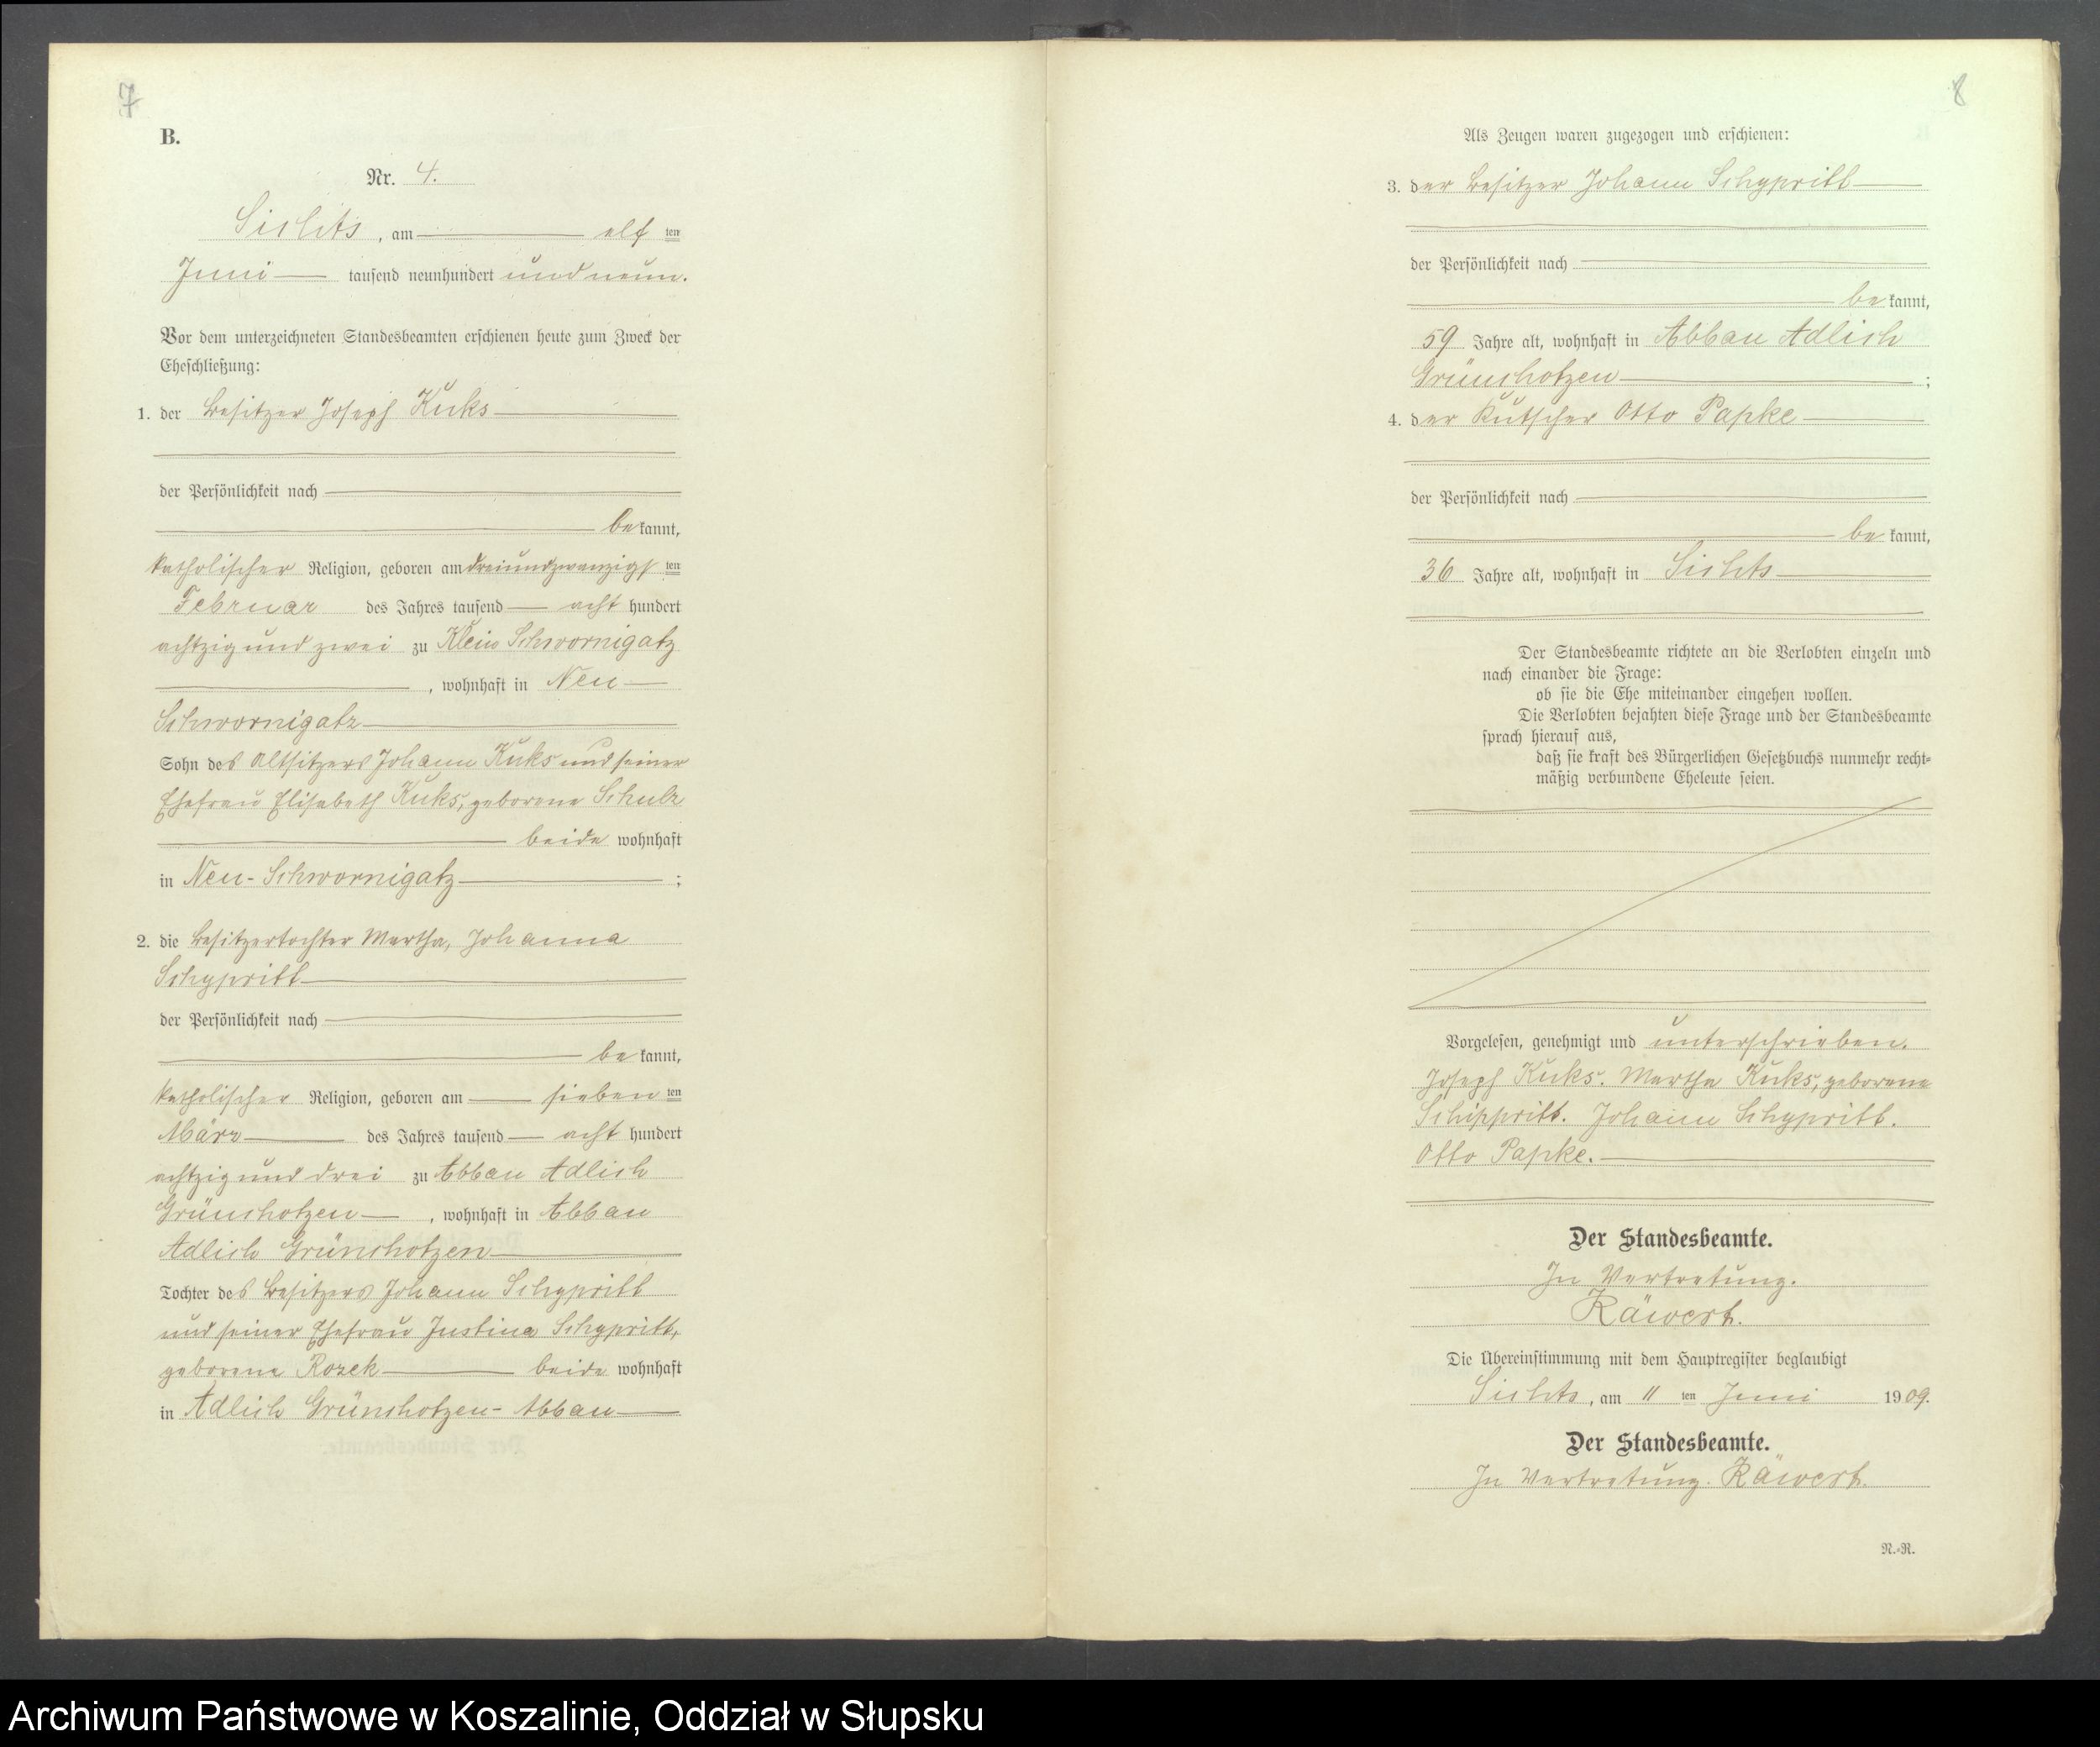 7
B.
Nr. 4.
Sichts, am elf ten
Juni tausend neunhundert und neun.
Vor dem unterzeichneten Standesbeamten erschienen heute zum Zweck der
Eheschließung:
1. der Besitzer Joseph Kuks
der Persönlichkeit nach
be kannt,
katholischer Religion, geboren am dreiundzwanzigsten
Februar des Jahres tausend acht hundert
achtzig und zwei zu Klein Schwornigatz
, wohnhaft in Neu
Schwornigatz
Sohn des Altsitzers Johann Kuks und seiner
Ehefrau Elisabeth Kuks, geborene Schulz
beide wohnhaft
in Neu-Schwornigatz ;
2. die Besitzertochter Martha, Johanna
Schypritt
der Persönlichkeit nach
be kannt,
katholischer Religion, geboren am sieben ten
März des Jahres tausend acht hundert
achtzig und drei zu Abbau Adlich
Grünchotzen , wohnhaft in Abbau
Adlich Grünchotzen
Tochter des Besitzers Johann Schypritt
und seiner Ehefrau Justina Schypritt,
geborene Rozek beide wohnhaft
in Adlich Grünchotzen-Abbau
8
Als Zeugen waren zugezogen und erschienen:
3. der Besitzer Johann Schypritt
der Persönlichkeit nach
be kannt,
59 Jahre alt, wohnhaft in Abbau Adlich
Grünchotzen ;
4. der Kutscher Otto Papke
der Persönlichkeit nach
be kannt,
36 Jahre alt, wohnhaft in Sichts
Der Standesbeamte richtete an die Verlobten einzeln und
nach einander die Frage:
ob sie die Ehe miteinander eingehen wollen.
Die Verlobten bejahten diese Frage und der Standesbeamte
sprach hierauf aus,
daß sie kraft des Bürgerlichen Gesetzbuchs nunmehr recht-
mäßig verbundene Eheleute seien.
Vorgelesen, genehmigt und unterschrieben.
Joseph Kuks. Martha Kuks, geborene
Schippritt. Johann Schypritt.
Otto Papke.
Der Standesbeamte.
In Vertretung.
Räwert.
Die Übereinstimmung mit dem Hauptregister beglaubigt
Sichts, am 11 ten Juni 1909.
Der Standesbeamte.
In Vertretung. Räwert.
N.-R.
Archiwum Państwowe w Koszalinie, Oddział w Słupsku